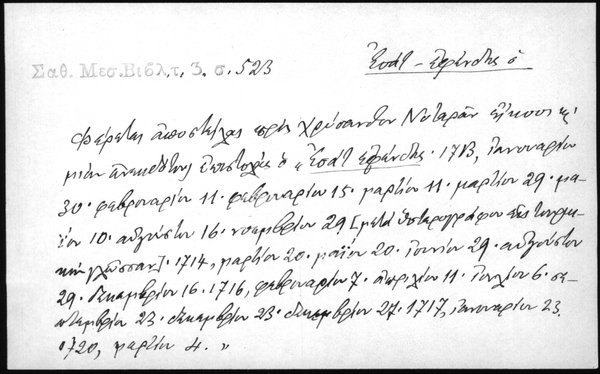 Σαθ. Μεσ. Βιβλ, τ. 3. σ. 523
Ἐσὰτ - ἐφέντης ὁ
Φέρεται ἀποστείλας πρὸς Χρύσανθον Νοταρᾶν εἴκοσι κ̣
μίαν ἀνεκδότους ἐπιστολὰς ὁ "Ἐσὰτ ἐφέντης. 1713, ἰανουαρίου
30. φεβρουαρίου 11. φεβρουαρίου 15. μαρτίου 11. μαρτίου 29. μα-
ΐου 10. αὐγούστου 16. νοεμβρίου 29 [μετὰ ὑστερογράφου εἰς τουρκι-
κὴν γλῶσσαν]. 1714, μαρτίου 20. μαΐου 20. ἰουνίου 29. αὐγούστου
29. δεκεμβρίου 16. 1716, φεβρουαρίου 7. ἀπριλίου 11. ἰουλίου 6. σε-
πτεμβρίου 23. δεκεμβρίου 23. δεκεμβρίου 27. 1717, ἰανουαρίου 23.
1720, μαρτίου 4. "